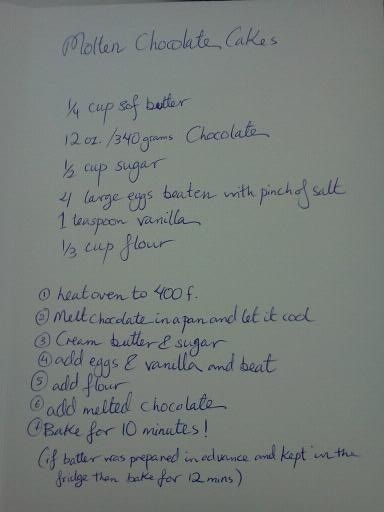 Molten Chocolate Cakes
1/4 cup sof butter
12 oz. /340 grams Chocolate
1/2 cup sugar
4 large eggs beaten with pinch of salt
1 teaspoon vanilla
1/3 cup flour
① heat oven to 400 f.
② Melt chocolate in a pan and let it cool
③ Cream butter & sugar
④ add eggs & vanilla and beat
⑤ add flour
⑥ add melted chocolate
⑦ Bake for 10 minutes!
(if batter was prepared in advance and kept in the
fridge then bake for 12 mins)